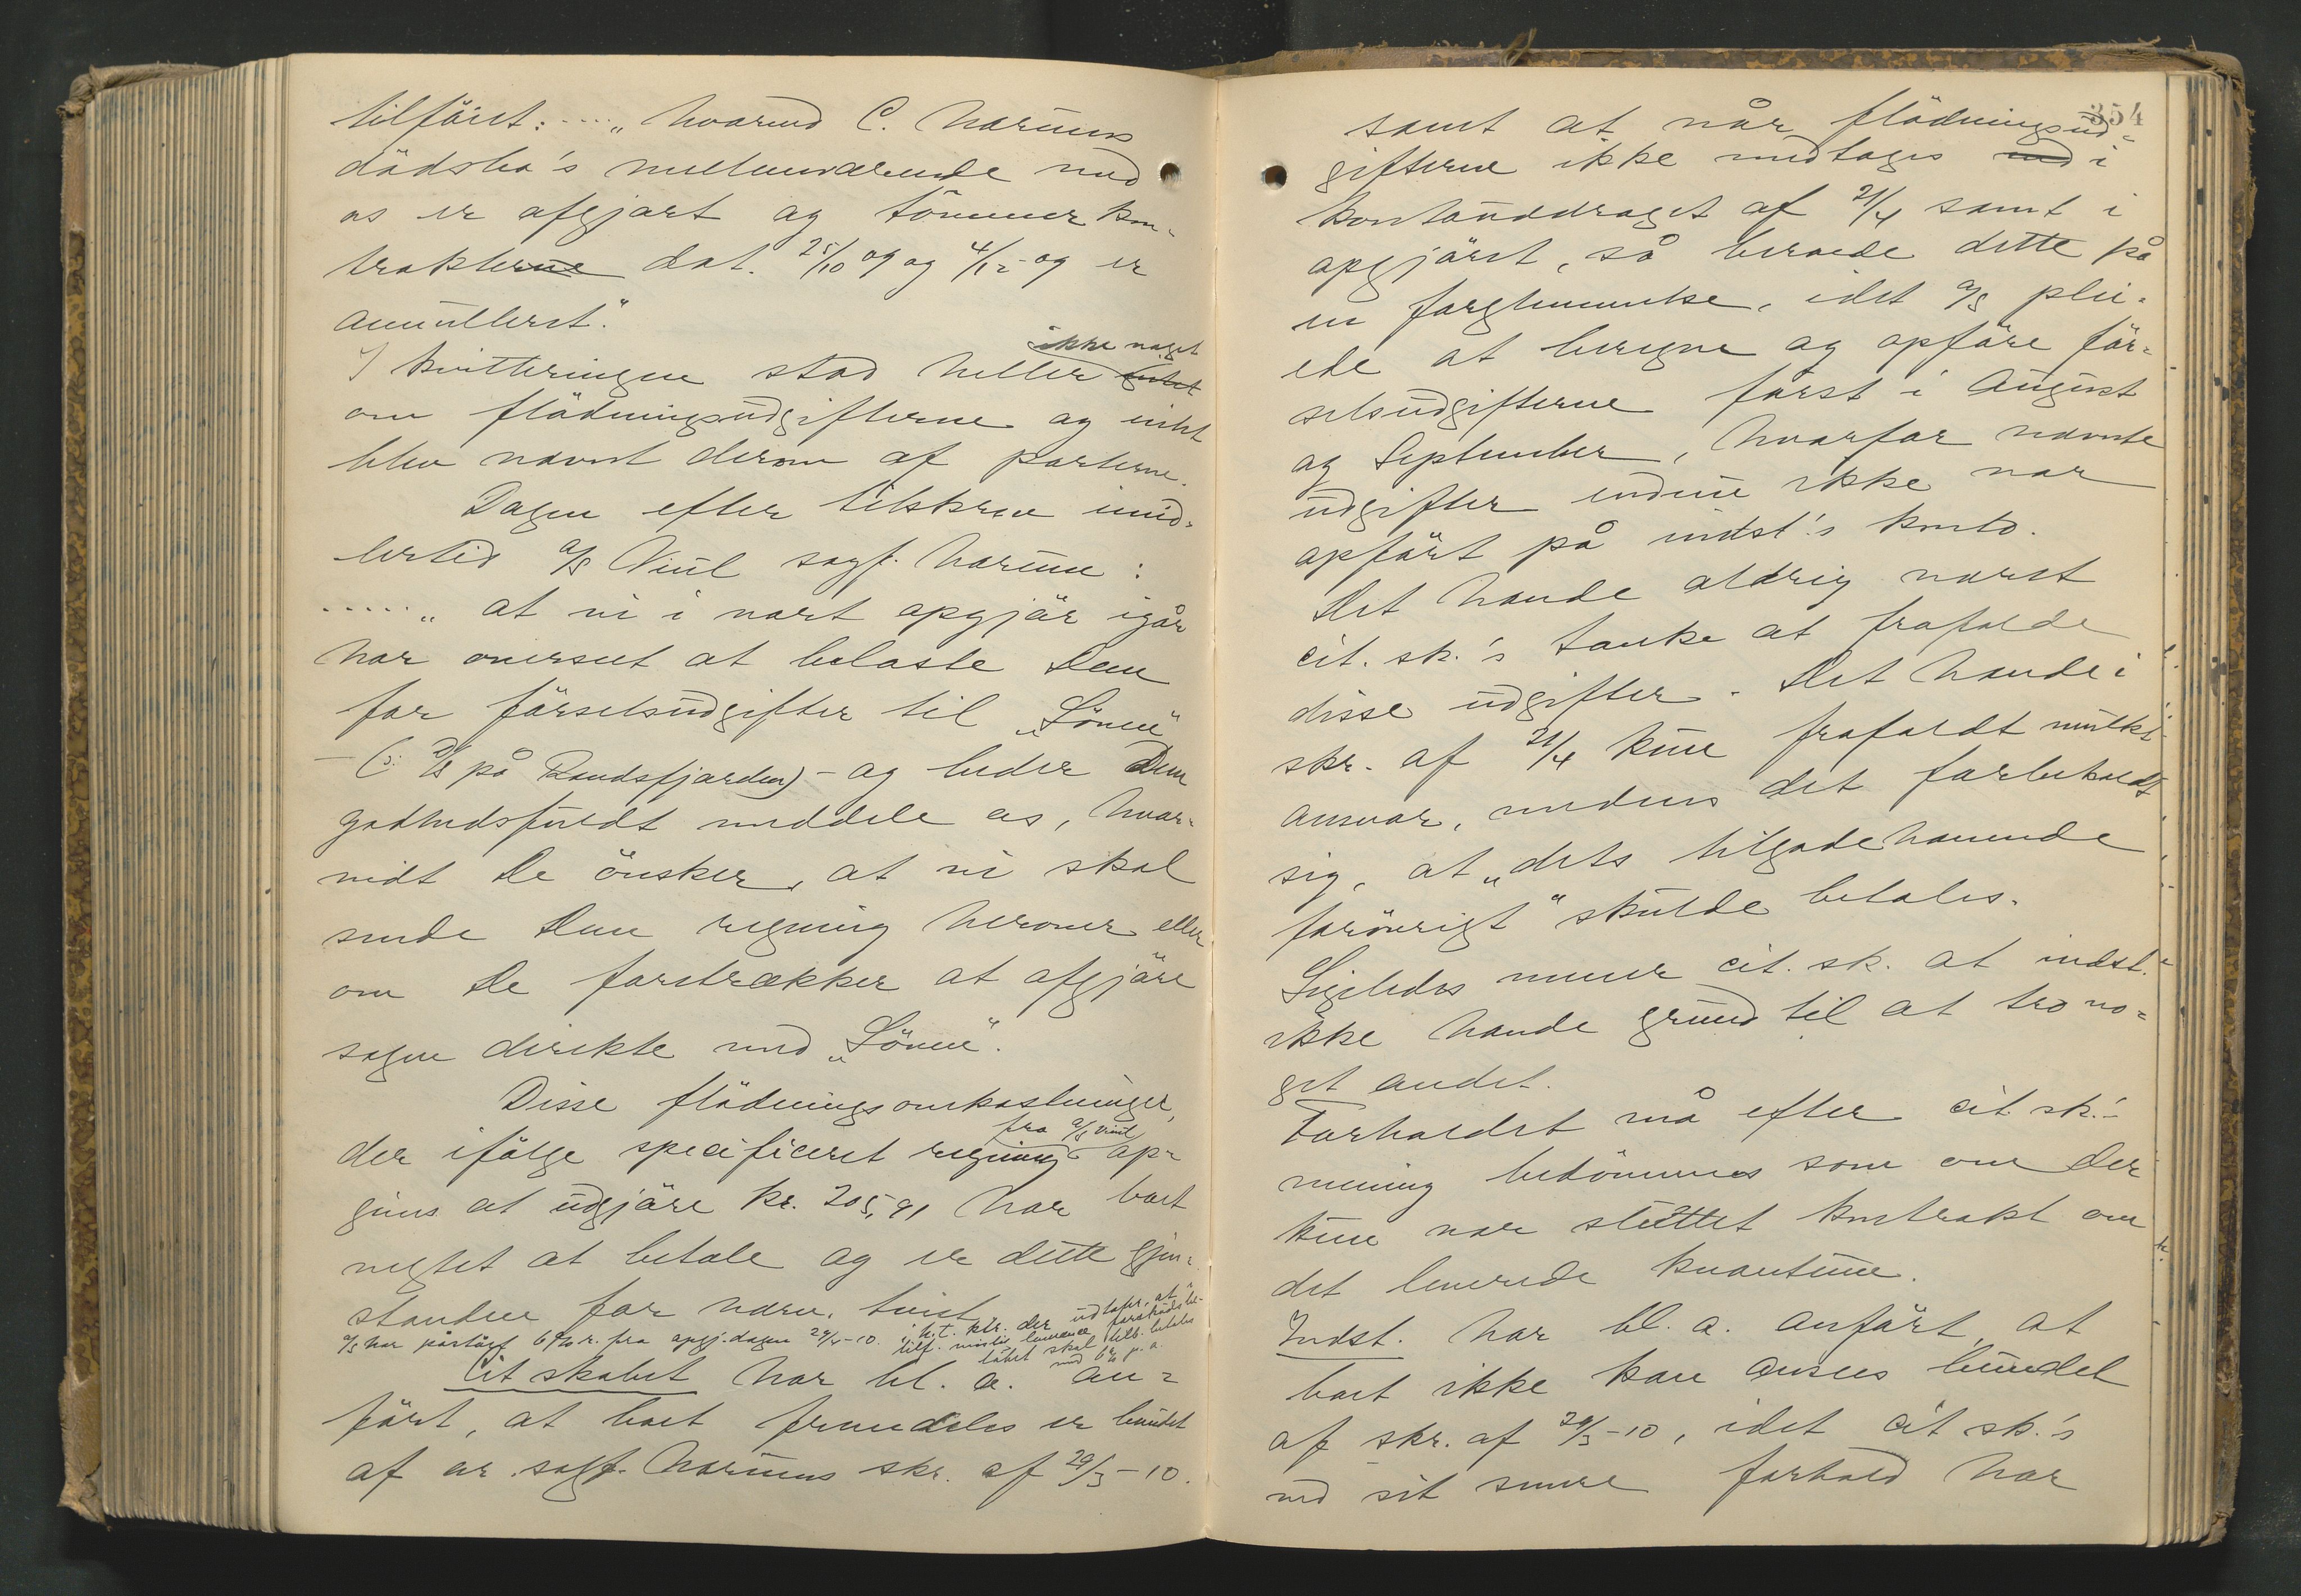 tilföiet: .... „hvarved C. Narums
dödsbo's mellemværende med
os er afgjort og tömmerkon-
trakterne dat. 25/10 09 og 4/12 - 09 er
annulleret."
ikke noget
I kvitteringen stod heller intet
om flödningsudgifterne og intet
blev nævnt derom af parterne.
Dagen efter tilskrev imid-
lertid A/S Viul sagf. Narum:
..... „at vi i vort opgjör igår
har overseet at belaste Dem
for förselsudgifter til „Lömen"
- (ɔ: D/S på Randsfjorden) - og beder Dem
godhedsfuldt meddele os, hvor-
vidt De önsker, at vi skal
sende Dem regning herover eller
om De foretrækker at afgjöre
sagen direkte med „Lömen".
Disse flödningsomkostninger,
fra A/S Viul
der ifölge specificeret regning op-
gives at udgjöre kr. 205,91 har boet
negtet at betale og er dette gjen-
standen for nærv. tvist.
A/S har påstået 6% r. fra opgj.dagen 29/4-10. i h. t. ktr. der udtaler, at
tilf. mislig leverance forskudsbe-
löbet skal tilb. betales
med 6% p. a.
Cit.skabet har bl. a. an-
fört, at boet fremdeles er bundet
af or.sagf. Narums skr. af 29/3-10.
354
samt at når flödningsud-
gifterne ikke medtages ved i
kontouddraget af 21/4 samt i
opgjöret, så beroede dette på
en forglemmelse, idet A/S plei-
ede at beregne og opföre för-
selsudgifterne först i August
og September, hvorfor nævnte
udgifter endnu ikke var
opfört på indst.'s konto.
Det havde aldrig været
cit. sk.'s tanke at frafalde
disse udgifter. Det havde i
skr. af 21/4 kun frafaldt mulkt-
ansvar, medens det forbeholdt
sig, at „dets tilgodehavende
forövrigt" skulde betales.
Ligeledes mener cit. sk. at indst.
ikke havde grund til at tro no-
get andet.
Forholdet må efter cit. sk.'s
mening bedömmes som om der
kun var sluttet kontrakt om
det leverede kvantum.
Indst. har bl. a. anfört, at
boet ikke kan ansees bundet
af skr. af 29/3-10, idet cit sk.'s
ved sit senere forhold har